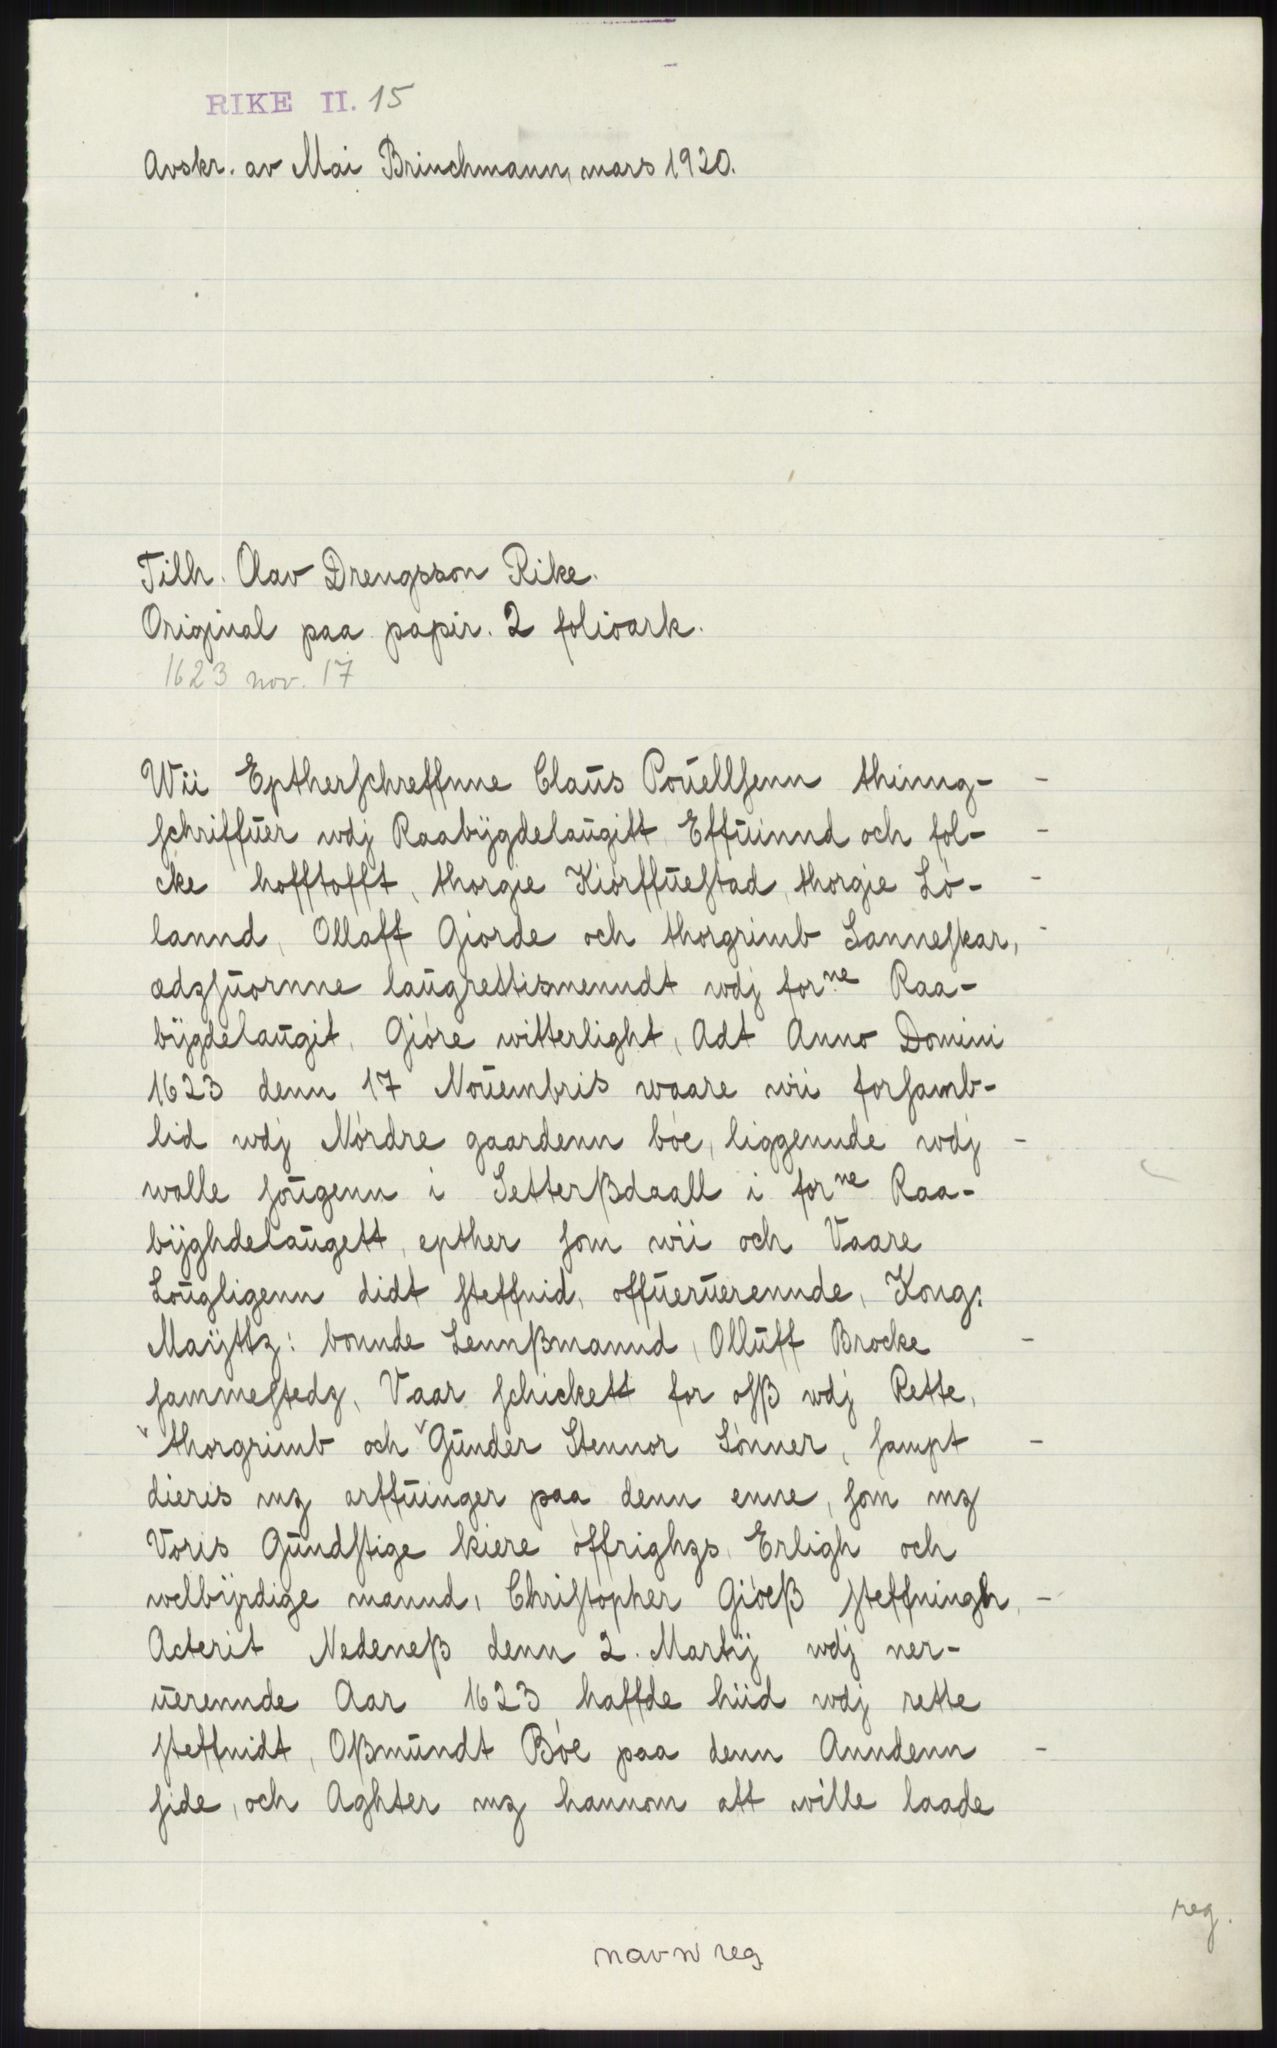 RIKE II. 15
Avskr. av Mai Brinchmann, mars 1920.
Tilh. Olav Drengsson Rike.
Original paa papir. 2 folioark.
1623 nov. 17
Wii Eptherſchreffnne Claŭs Poŭellſenn thinng-
ſchriffŭer wdj Raabÿgdelaŭgitt, Effŭinnd och fol-
cke hofftofft, thorgie Kiórffŭeſtad, thorgie Ló-
lannd, Ollaff Giorde och thorgrimb Sanneſkar,
ædzſŭornne laŭgrettismenndt wdj forne Raa-
bÿgdelaŭgit, Gióre witterlight, Adt Anno Domini
1623 denn 17 Noŭembris waare wii forſamb-
lid wdj Nórdre gaardenn bóe, liggennde wdj
walle ſoŭgenn i Setterßdaall i forne Raa-
bÿghdelaŭgett, epther ſom wii och Vaare
Loŭgligenn didt ſteffnid, offŭerŭerennde, Kong:
Maÿttz: bonnde Lennßmannd, Ollŭff Brocke
ſammeſtedz, Vaar ſchickett for oſß wdj Rette,
thorgrimb och Gŭnder Stennor Sónner, ſampt
dieris mz arffŭinger paa denn enne, ſom mz
Voris Gŭndſtige kiere óffrighzs, Erligh och
welbÿrdige mannd, Chriſtopher Gióeß ſteffningh,
Acterit Nedeneß denn 2. Martÿ wdj ner-
ŭerennde Aar 1623 haffde hiid wdj rette
ſteffnidt, Oßmŭndt Bóe paa denn Anndenn
ſide, och Aghter mz hannom att wille laade
reg.
navn reg